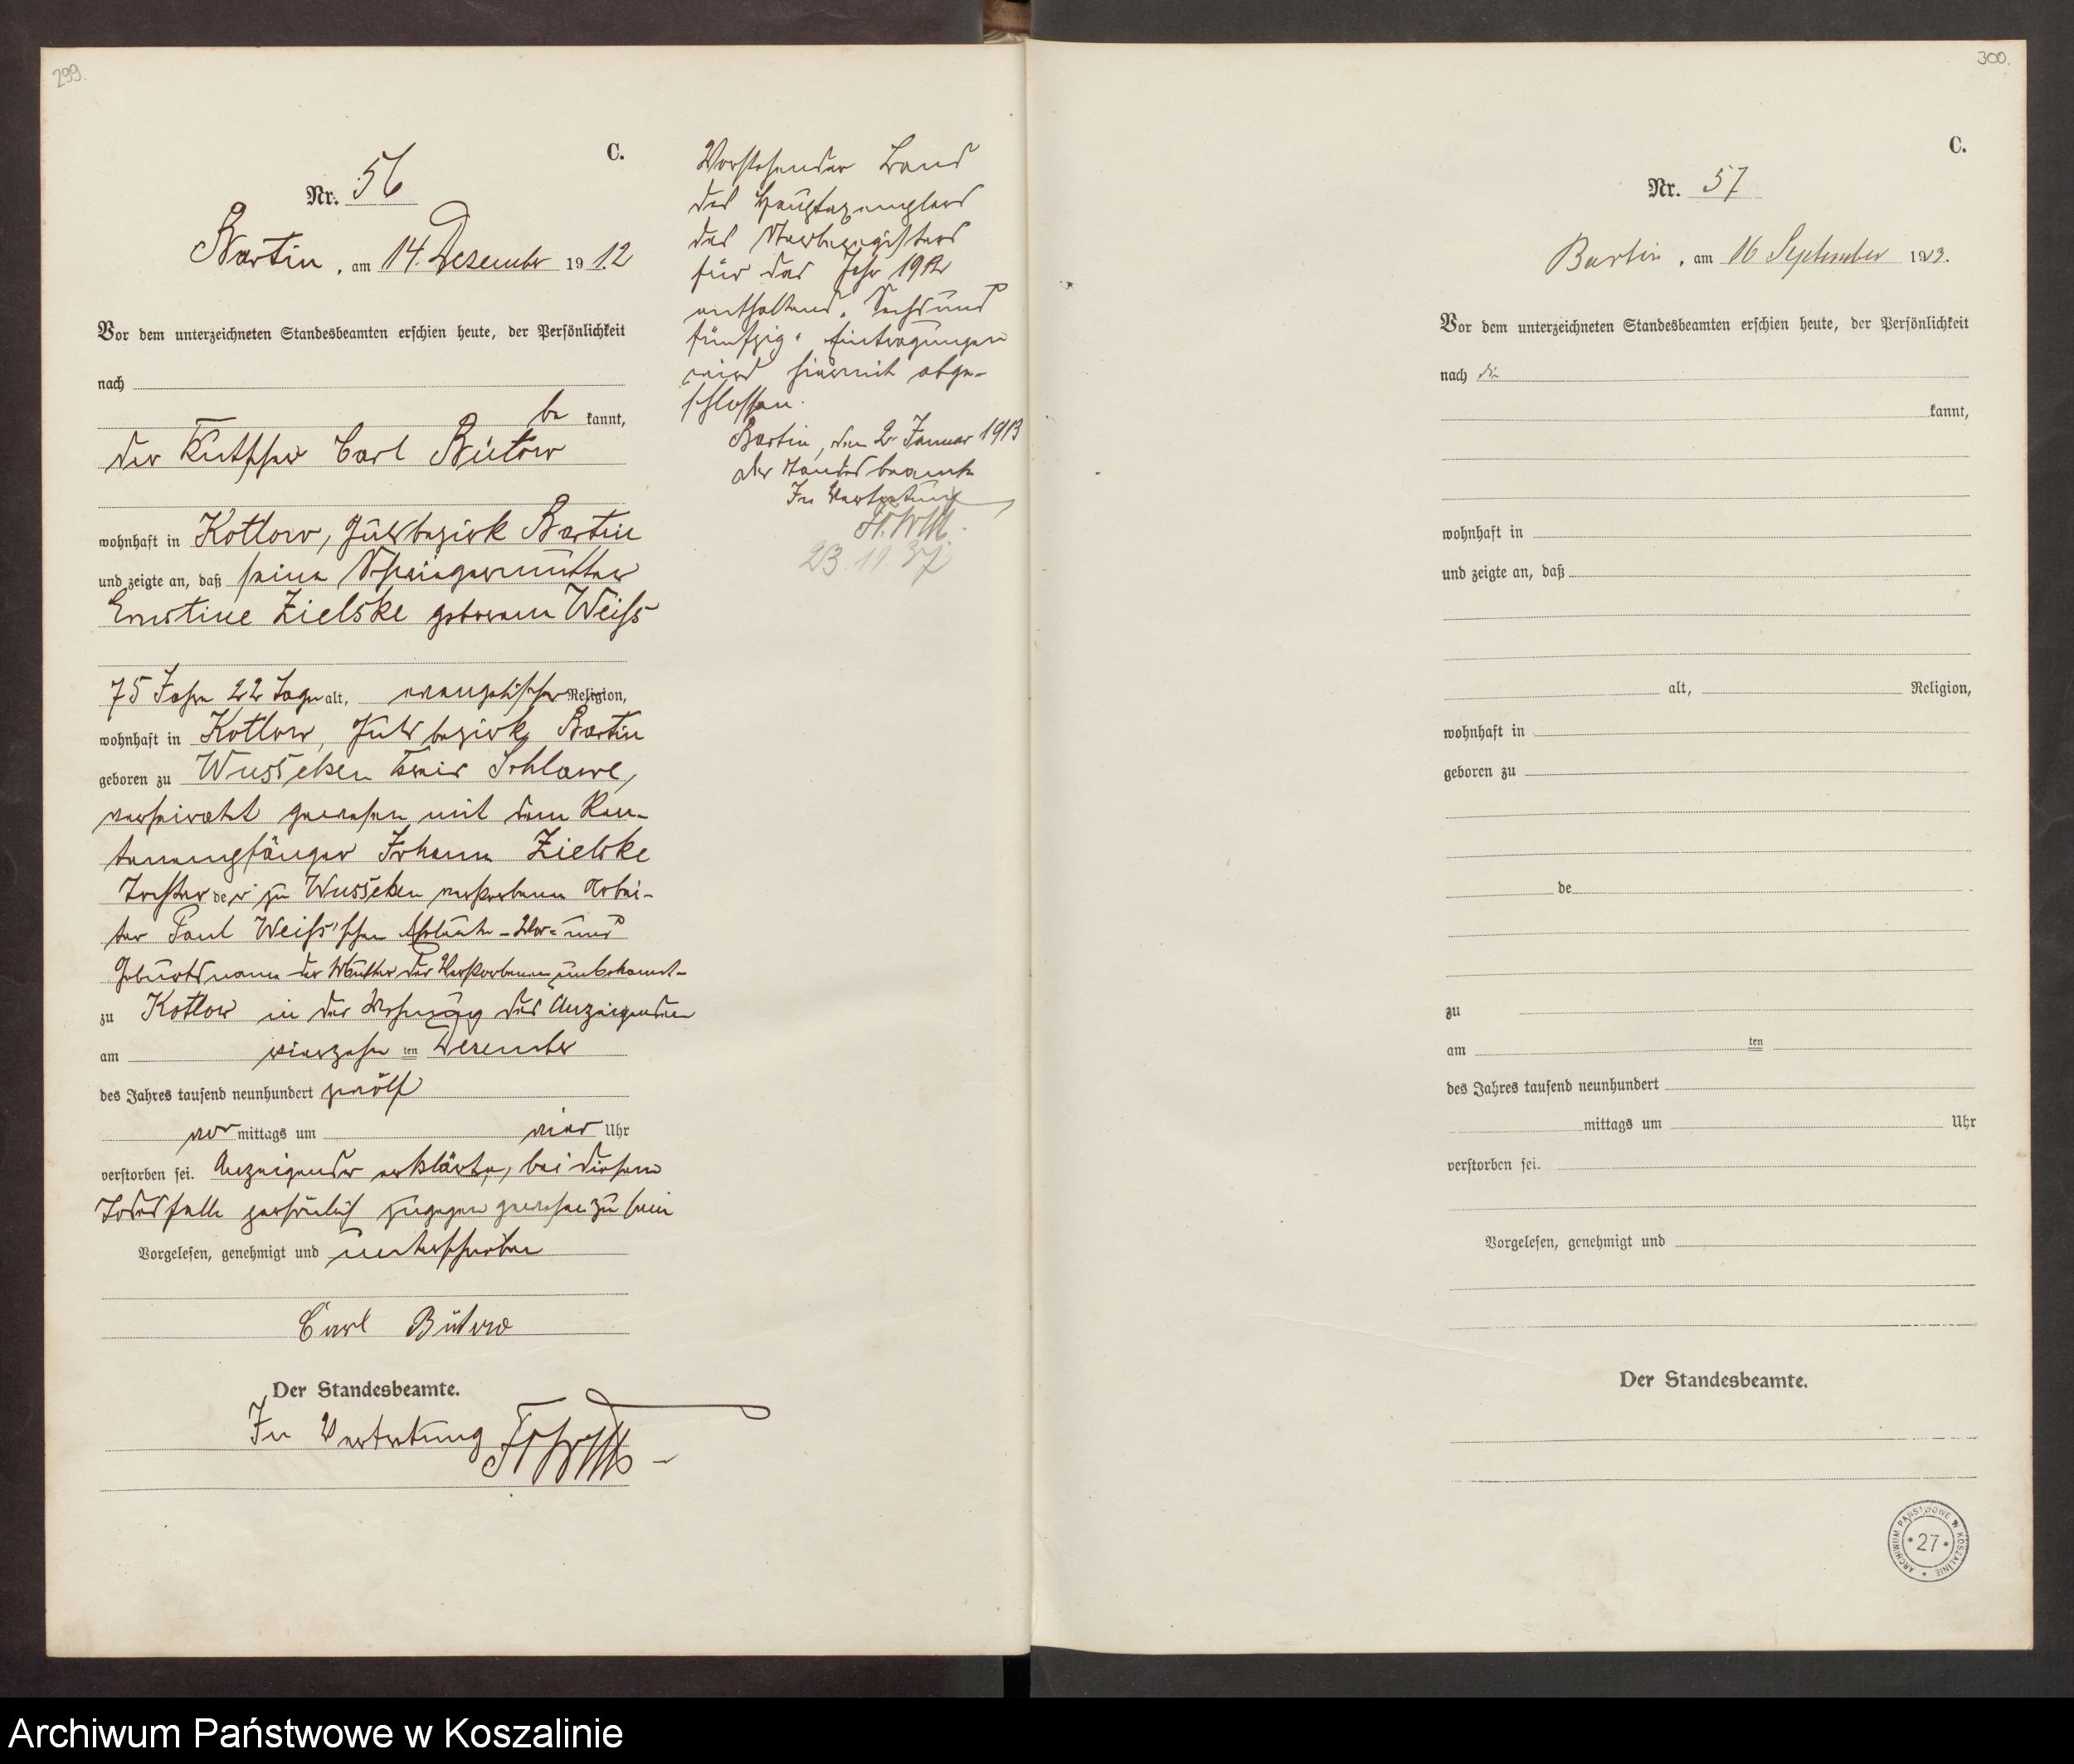 299.
C.
Nr. 56
Bartin, am 14. Dezember 1912
Vor dem unterzeichneten Standesbeamten erschien heute, der Persönlichkeit
nach
be kannt,
der Kutscher Carl Bütow
wohnhaft in Kotlow, Gutsbezirk Bartin
und zeigte an, daß seine Schwiegermutter
Ernstine Zielske geborene Weiß
75 Jahre 22 Tage alt, evangelischer Religion,
wohnhaft in Kotlow, Gutsbezirk Bartin
geboren zu Wusseken Kreis Schlawe,
verheirathet gewesen mit dem Ren-
tenempfänger Johann Zielske
Tochter der zu Wusseken verstorbenen Arbei-
ter Paul Weiß'schen Eheleute - Vor- und
Geburtsname der Mutter der Verstorbenen unbekannt -
zu Kotlow in der Wohnung des Anzeigenden
am vierzehn ten Dezember
des Jahres tausend neunhundert zwölf
vor mittags um vier Uhr
verstorben sei. Anzeigender erklärte, bei diesem
Todesfalle persönlich zugegen gewesen zu sein
Vorgelesen, genehmigt und unterschrieben
Carl Bütow
Der Standesbeamte.
In Vertretung
Vorstehender Band
des Hauptexemplars
des Sterberegisters
für das Jahr 1912
enthaltend "Sechsund
fünfzig" Eintragungen
wird hiermit abge-
schlossen.
Bartin, den 2. Januar 1913
Der Standesbeamte
In Vertretung
23.11.37
300.
C.
Nr. 57
Bartin, am 16 September 1913.
Vor dem unterzeichneten Standesbeamten erschien heute, der Persönlichkeit
nach
kannt,
wohnhaft in
und zeigte an, daß
alt, Religion,
wohnhaft in
geboren zu
de
zu
am ten
des Jahres tausend neunhundert
mittags um Uhr
verstorben sei.
Vorgelesen, genehmigt und
Der Standesbeamte.
ARCHIWUM PAŃSTWOWE W KOSZALINIE
* 27 *
Archiwum Państwowe w Koszalinie